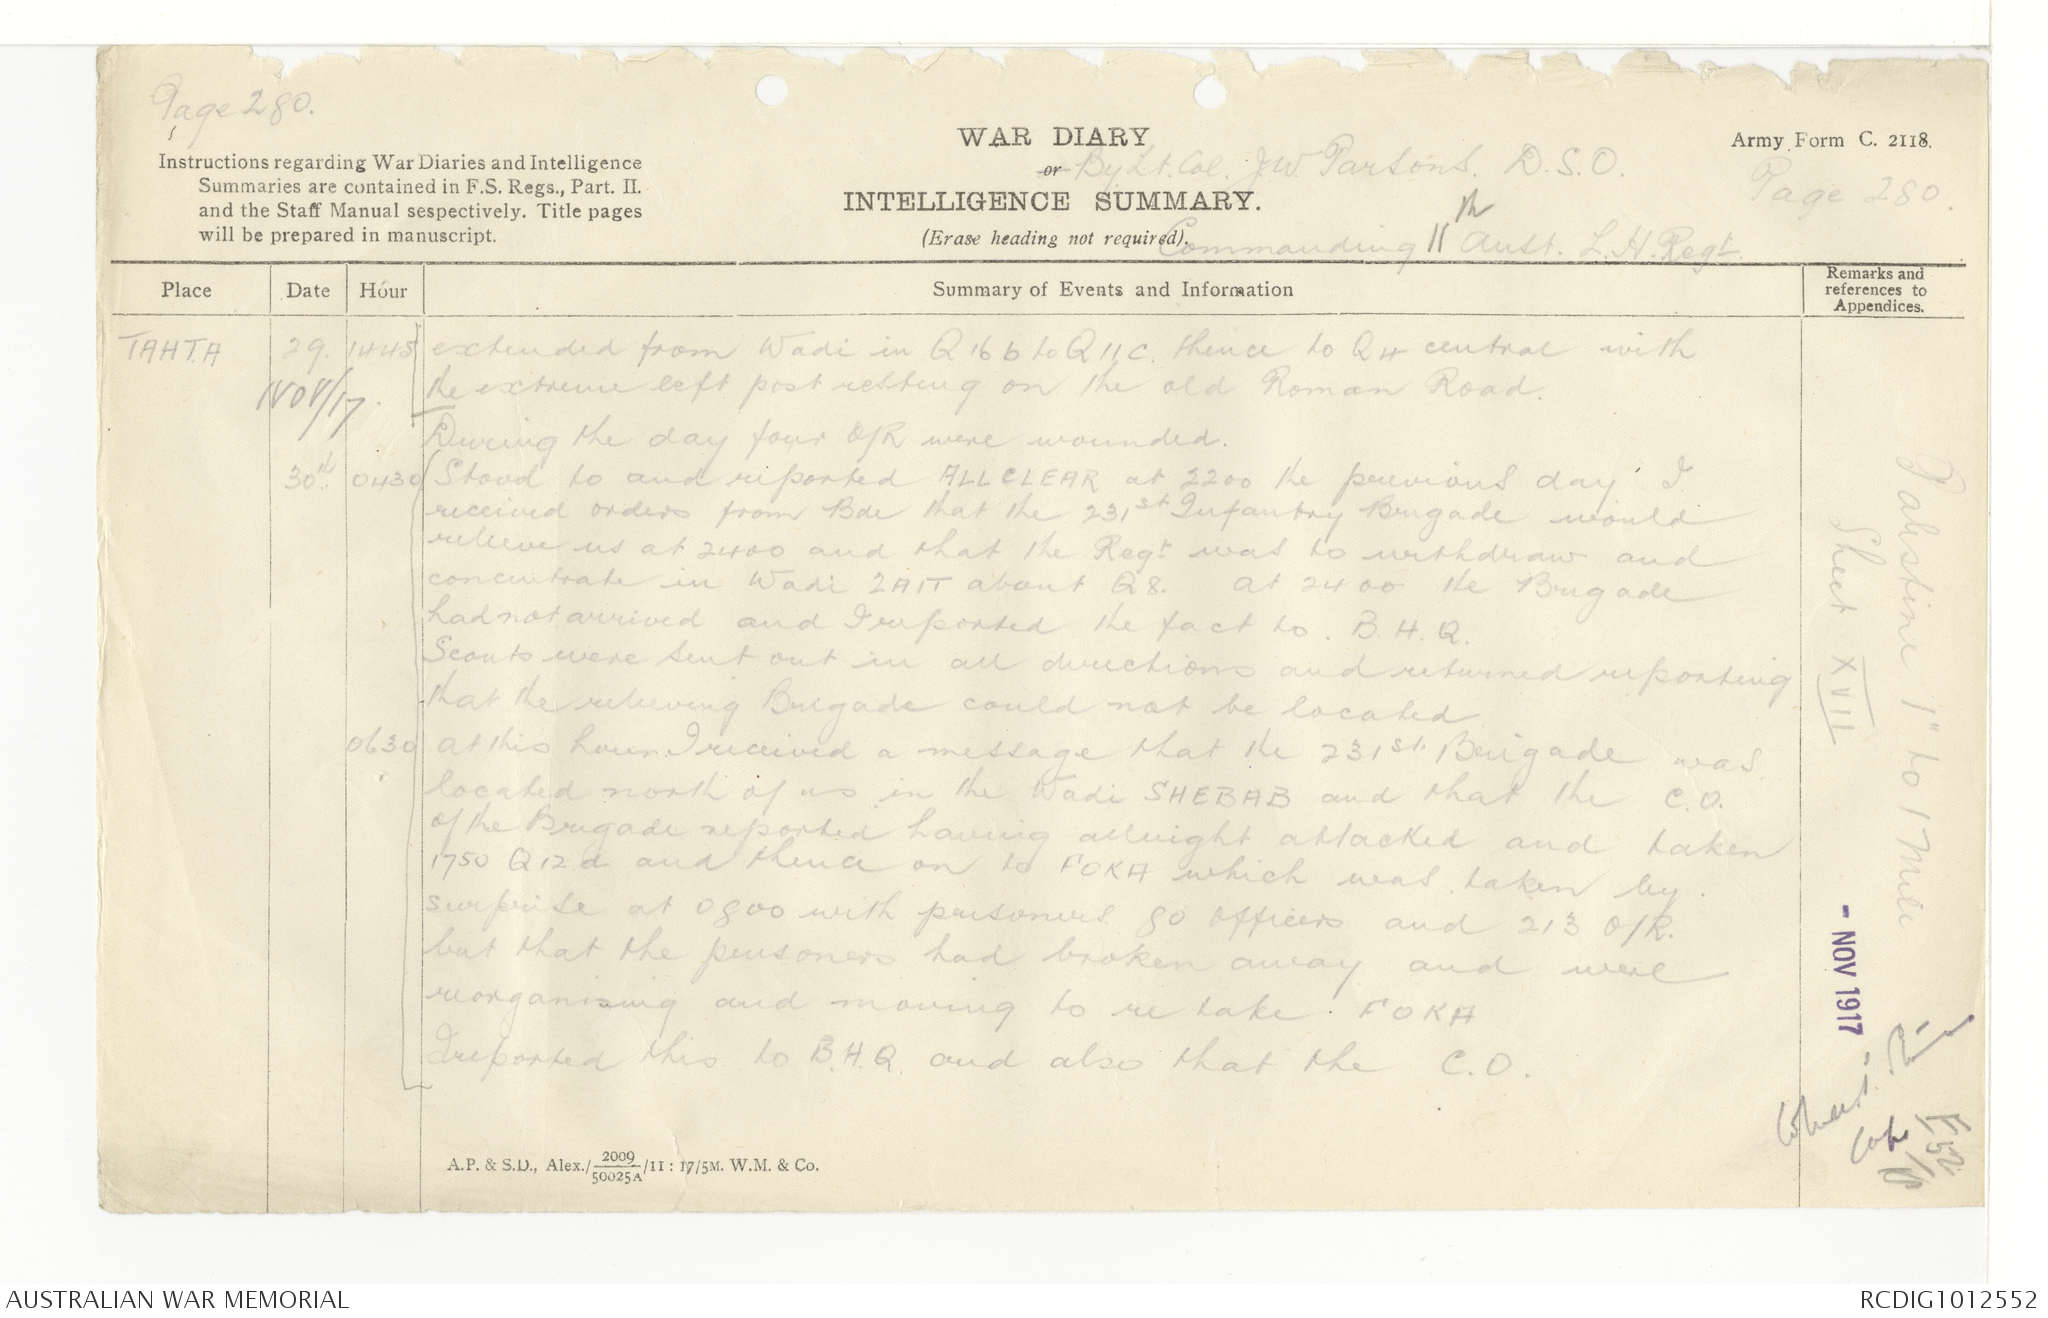 Page 280.
Instructions regarding War Diaries and Intelligence
Summaries are contained in F.S. Regs., Part. II.
and the Staff Manual sespectively. Title pages
will be prepared in manuscript.
WAR DIARY
or By Lt. Col. J.W. Parsons. D.S.O.
INTELLIGENCE SUMMARY.
(Erase heading not required).
Commanding 11th Aust. L.H. Regt.
Army Form C. 2118.
Page 280.
Place Date Hour Summary of Events and Information Remarks and references to Appendices.
TAHTA 29. 1445 extended from Wadi in Q16b to Q11C. thence to Q4 central with
NOV/17. the extreme left post resting on the old Roman Road.
During the day four O/R were wounded.
30th. 0430 Stood to and reported ALL CLEAR at 2200 the previous day I
received orders from Bde that the 231st Infantry Brigade would
relieve us at 2400 and that the Regt was to withdraw and
concentrate in Wadi ZAIT about Q8. At 2400 the Brigade
had not arrived and I reported the fact to. B.H.Q.
Scouts were sent out in all directions and returned reporting
that the relieving Brigade could not be located
0630 at this hour I received a message that the 231st. Brigade was
located north of us in the Wadi SHEBAB and that the C.O.
of the Brigade reported having all night attacked and taken
1750 Q12.d and thence on to FOKA which was taken by.
surprise at 0800 with prisoners 80 officers and 213 O/R.
but that the prisoners had broken away and were
reorganising and moving to re take. FOKA
I reported this to B.H.Q. and also that the C.O.
Palestine 1" to 1 Mile
Sheet XVII
- NOV 1917 -
A.P. & S.D., Alex./2009/50025A/11 : 17/5M. W.M. & Co.
AUSTRALIAN WAR MEMORIAL
RCDIG1012552